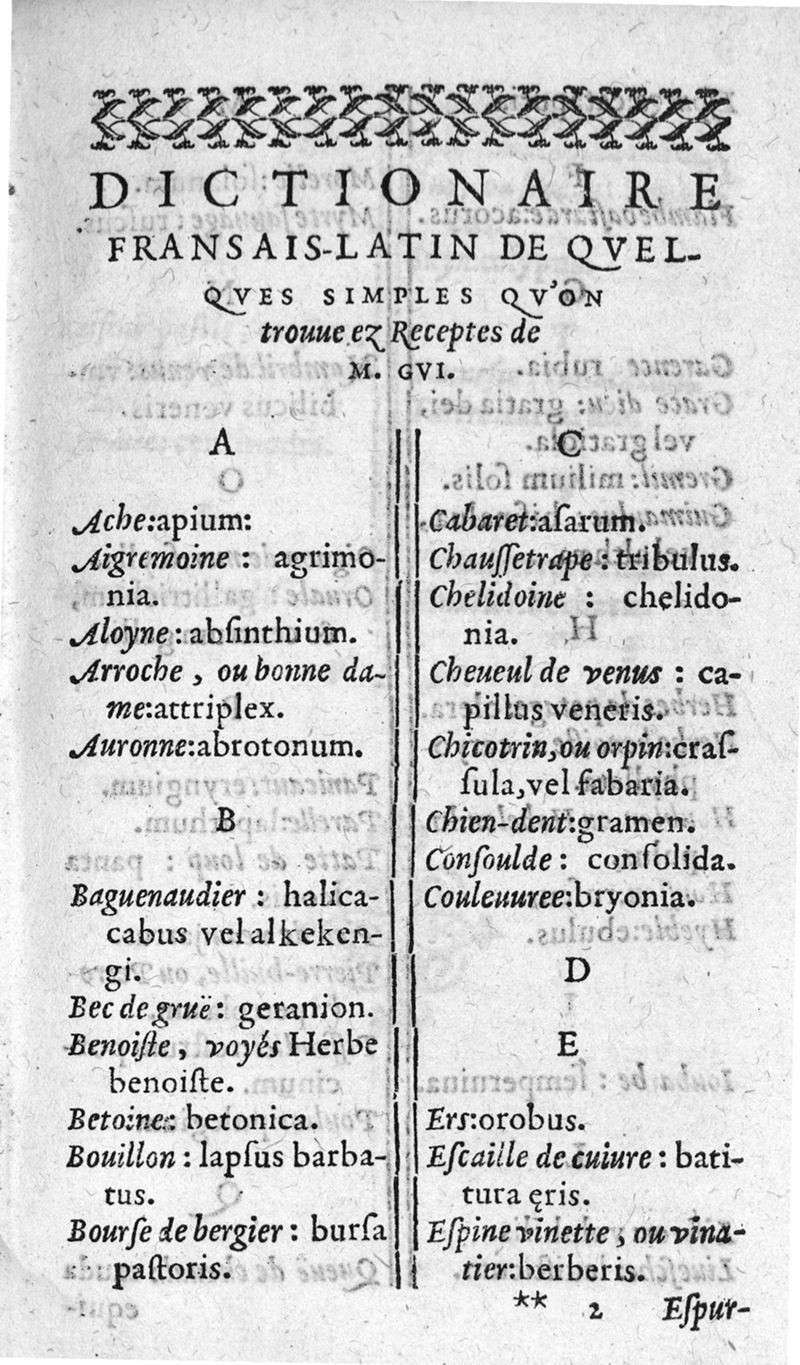 DICTIONAIRE
FRANSAIS-LATIN DE QVEL-
QVES SIMPLES QV'ON
trouue ez Receptes de
M. GVI.
A
Ache:apium:
Aigremoine : agrimo-
nia.
Aloyne : abſinthium.
Arroche , ou bonne da-
me:attriplex.
Auronne:abrotonum.
B
Baguenaudier : halica-
cabus vel alkeken-
gi.
Bec de gruë : geranion.
Benoiſte, voyés Herbe
benoiſte.
Betoine: betonica.
Bouillon : lapſus barba-
tus.
Bourſe de bergier : burſa
paſtoris.
C
Cabaret:aſarum.
Chauſſetrape : tribulus.
Chelidoine : chelido-
nia.
Cheueul de venus : ca-
pillus veneris.
Chicotrin, ou orpin:craſ-
ſula, vel fabaria.
Chien-dent:gramen.
Conſoulde : conſolida.
Couleuuree:bryonia.
D
E
Ers:orobus.
Eſcaille de cuiure : bati-
tura ęris.
Eſpine vinette , ou vina-
tier:berberis.
** 2 Eſpur-